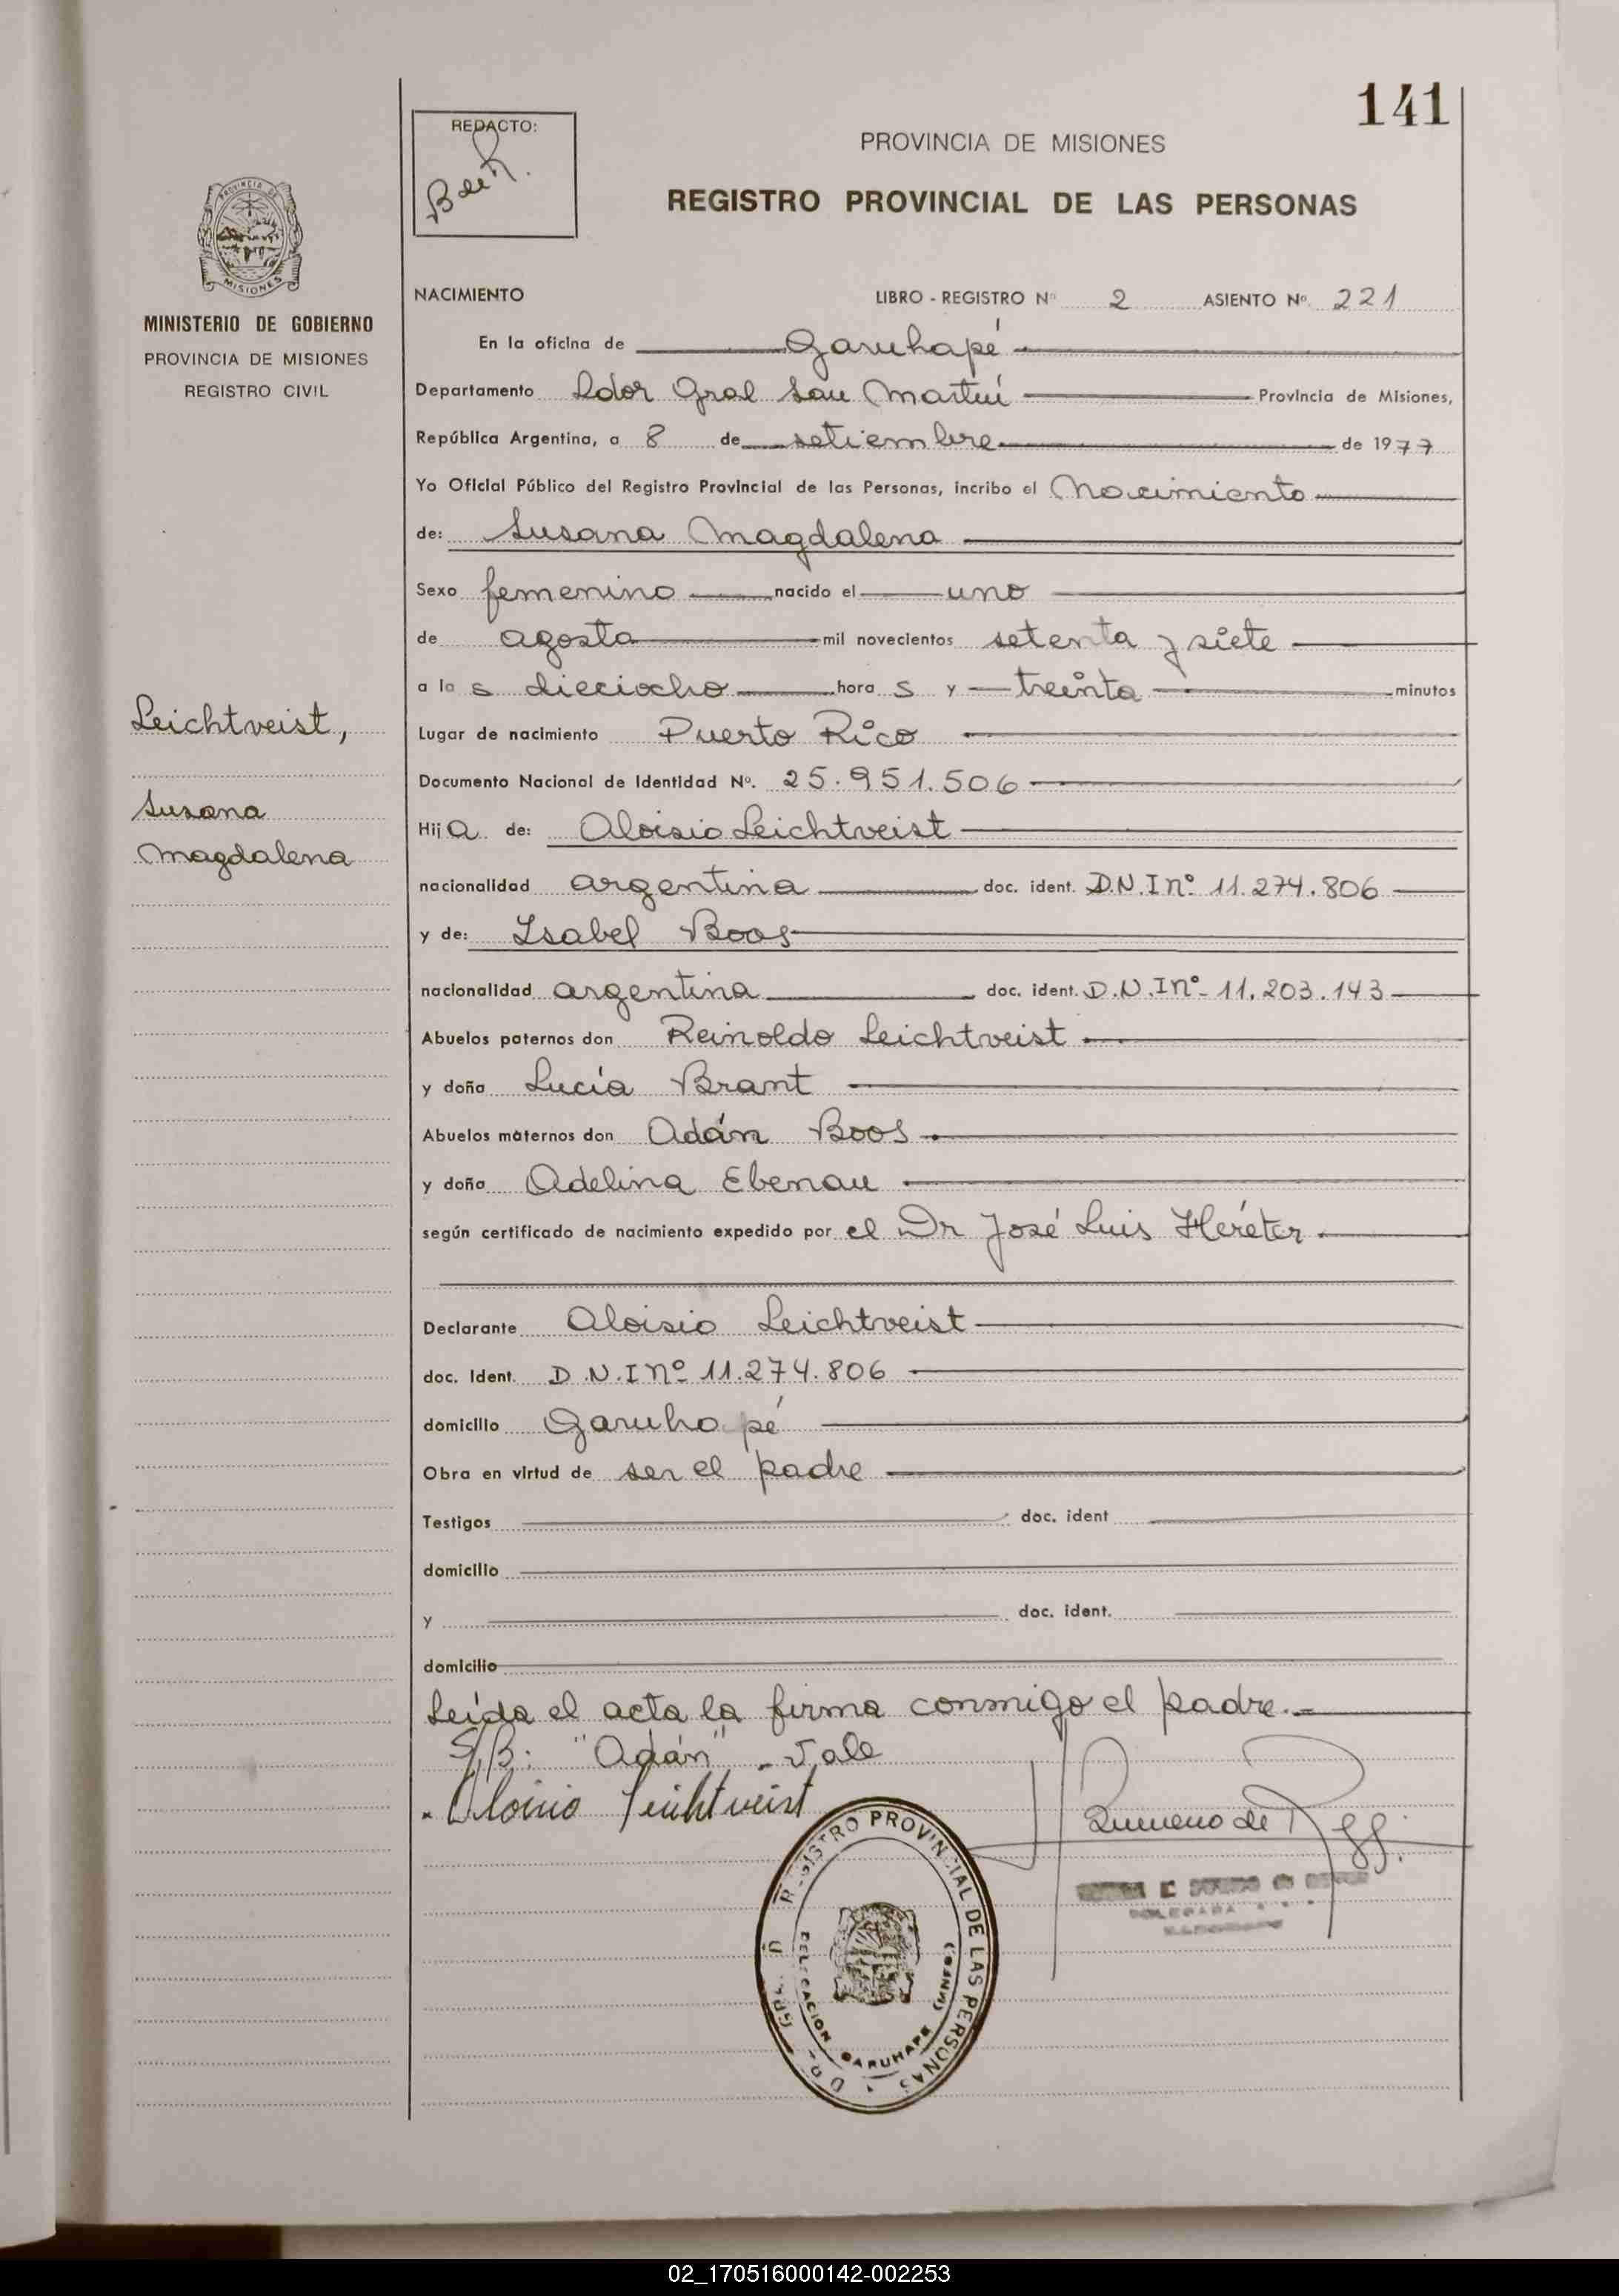 141
REDACTO:
PROVINCIA DE MISIONES
REGISTRO PROVINCIAL DE LAS PERSONAS
PROVINCIA DE
MISIONES
MINISTERIO DE GOBIERNO
PROVINCIA DE MISIONES
REGISTRO CIVIL
Leichtveist,
Susana
Magdalena
NACIMIENTO LIBRO - REGISTRO Nº 2 ASIENTO Nº 221
En la oficina de Garuhapé
Departamento Ldor Gral San Martín Provincia de Misiones,
República Argentina, a 8 de setiembre de 1977
Yo Oficial Público del Registro Provincial de las Personas, incribo el Nacimiento
de: Susana Magdalena
Sexo femenino nacido el uno
de agosto mil novecientos setenta y siete
a las dieciocho horas y treinta minutos
Lugar de nacimiento Puerto Rico
Documento Nacional de Identidad Nº. 25.951.506
Hija de: Aloisio Leichtveist
nacionalidad argentina doc. ident. D.N.I nº 11.274.806
y de: Isabel Boos
nacionalidad argentina doc. ident. D.N.I nº 11.203.143
Abuelos paternos don Reinoldo Leichtveist
y doña Lucía Brant
Abuelos maternos don Adán Boos
y doña Adelina Ebenau
según certificado de nacimiento expedido por el Dr José Luis Heréter
Declarante Aloisio Leichtveist
doc. Ident. D.N.I nº 11.274.806
domicilio Garuhapé
Obra en virtud de ser el padre
Testigos doc. ident
domicilio
y doc. ident.
domicilio
Leída el acta la firma conmigo el padre.-
S/B: "Adán" - Vale
Aloisio Leichtveist
REGISTRO PROVINCIAL DE LAS PERSONAS
DELEGACION GARUHAPE (MNES)
02_170516000142-002253